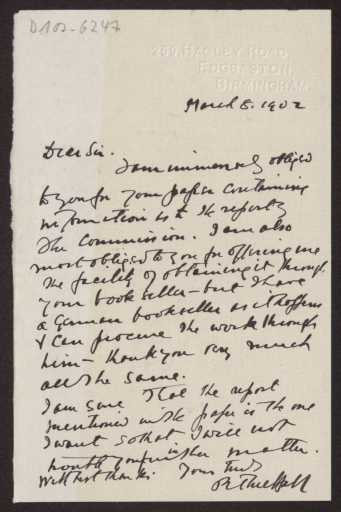 D102-6247
259, HAGLEY ROAD,
EDGBASTON,
BIRMINGHAM.
March 8. 1902
Dear Sir.
I am immensely obliged
to you for your paper containing
information as to the report of
the Commission. I am also
most obliged to you for offering me
the facility of obtaining it through
your bookseller - but I have
a German bookseller as it happens
& can procure the work through
him - thank you very much
all the same.
I am sure that the report
mentioned in the paper is the one
I want so that I will not
trouble you further in the matter.
With best thanks. Yours truly